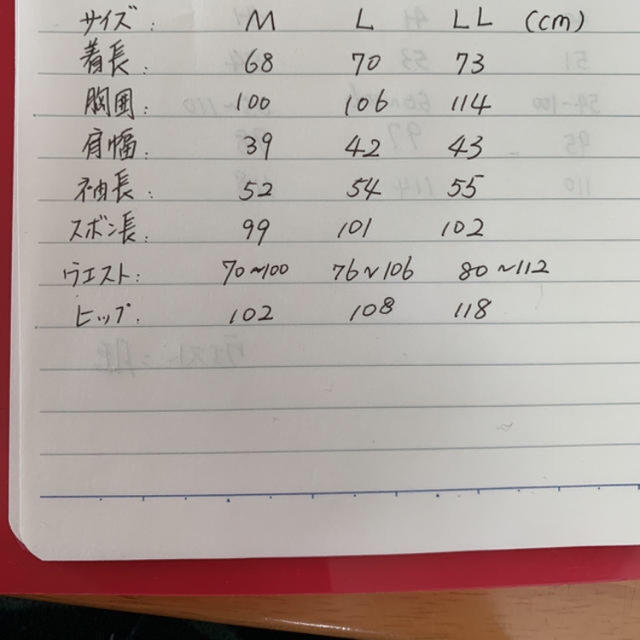 サイズ: M L LL (cm)
着長: 68 70 73
胸囲: 100 106 114
肩幅: 39 42 43
袖長: 52 54 55
スボン長: 99 101 102
ウエスト: 70~100 76~106 80~112
ヒップ: 102 108 118